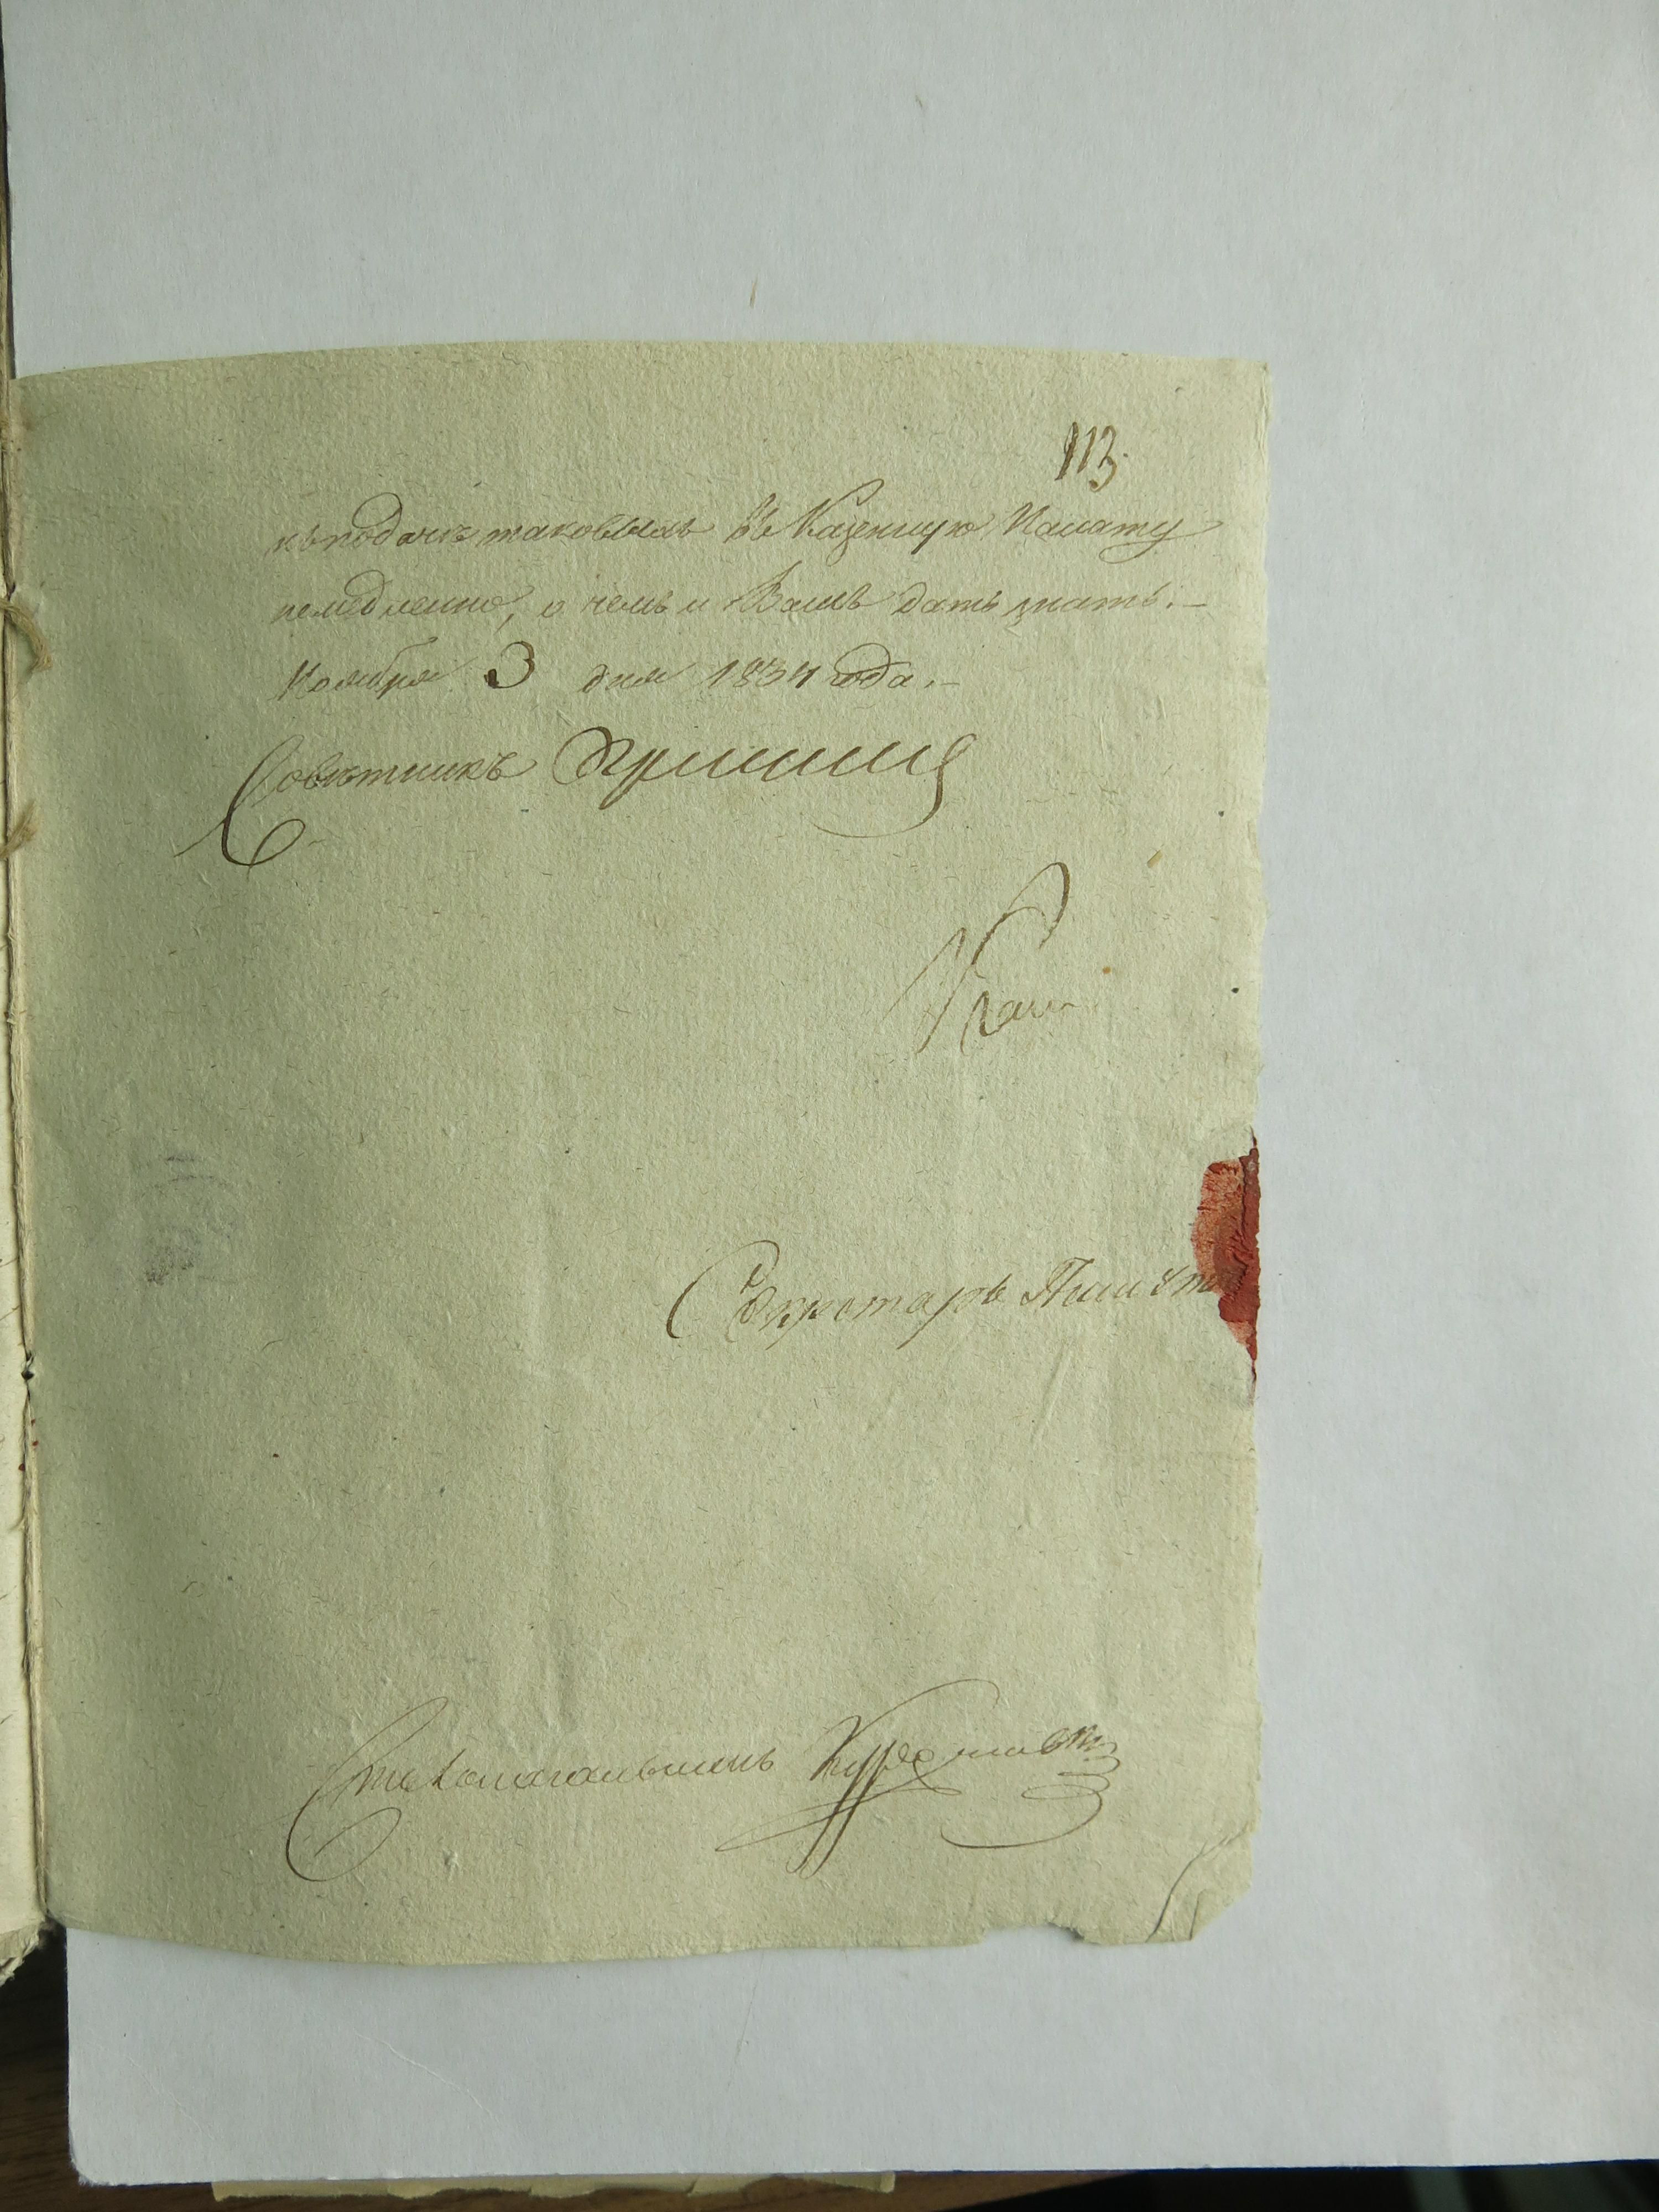 113.
къ подачѣ таковыхъ въ Казенную Палату
немедленно, о чемъ и Вамъ дать знать.—
Ноября 3 дня 1834 года.—
Совѣтникъ
Секретарь
Столоначальникъ